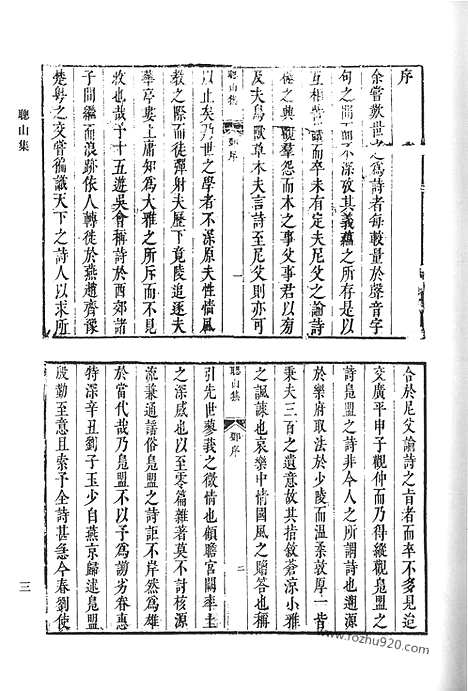 聽山集
序
余嘗歎世之為詩者每較量於聲音字
句之間而不深攷其義蘊之所存是以
互相訾議而卒未有定夫尼父之論詩
徵之興觀羣怨而本之事父事君以旁
及夫鳥獸草木夫言詩至尼父則亦可
聽山集 鄭序 一
以止矣乃世之學者不深原夫性情風
教之際而徒彈射夫歷下竟陵追逐夫
華亭婁上庸知為大雅之所斥而
也哉予十五遊吳會稱詩於西郊諸
子間繼而浪跡依人轉徒於燕趙齊豫
楚粵之交嘗徧識天下之詩人以求所
合於尼父論詩之旨者而卒不多見迨
交廣平申子觀仲而乃得縱觀鳧盟之
詩鳧盟之詩非今人之所謂詩也遡源
於樂府取法於少陵而溫柔敦厚一皆
秉夫三百之遺意故其指敘蒼涼小雅
聽山集 鄭序 二
之諷諫也哀樂中情國風之贈答也而
引先世蓼莪之微情也傾膽宮闕率土
之深感也以至零篇雜著莫不討核源
流兼通謠俗鳧盟之詩詎不岸然為雄
於當代哉乃鳧盟不以予為謭劣眷惠
特深辛丑劉子玉少自燕京歸述鳧盟
殷勤至意且索予全詩甚急今春劉使
三
www.fozhu920.com